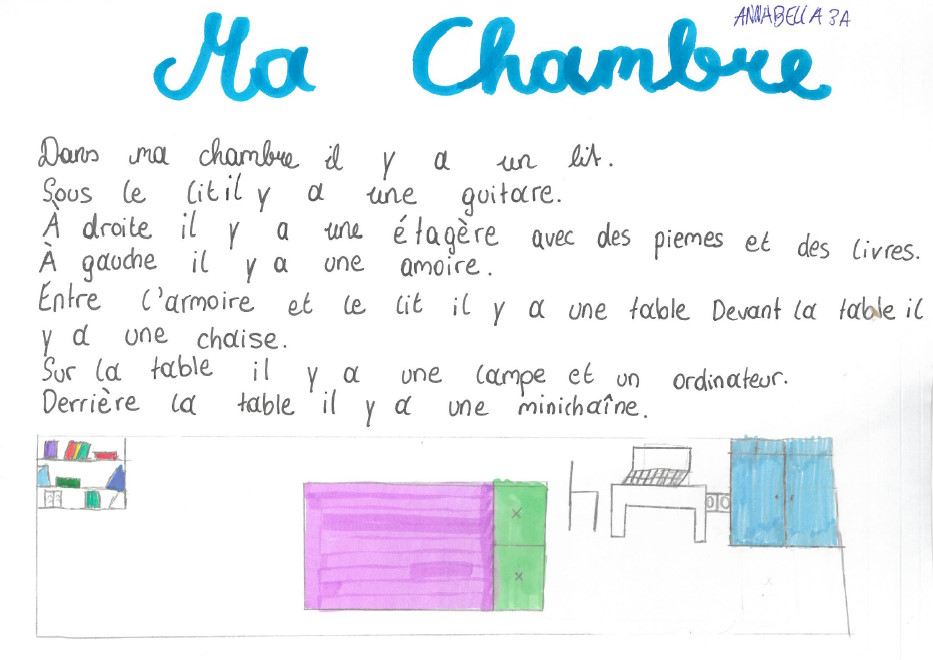 ANNABELLA 3A
Ma Chambre
Dans ma chambre il y a un lit.
Sous le lit il y a une guitare.
À droite il y a une étagère avec des piemes et des livres.
À gauche il y a une amoire.
Entre l'armoire et le lit il y a une table Devant la table il
y a une chaise.
Sur la table il y a une lampe et un ordinateur.
Derrière la table il y a une minichaîne.